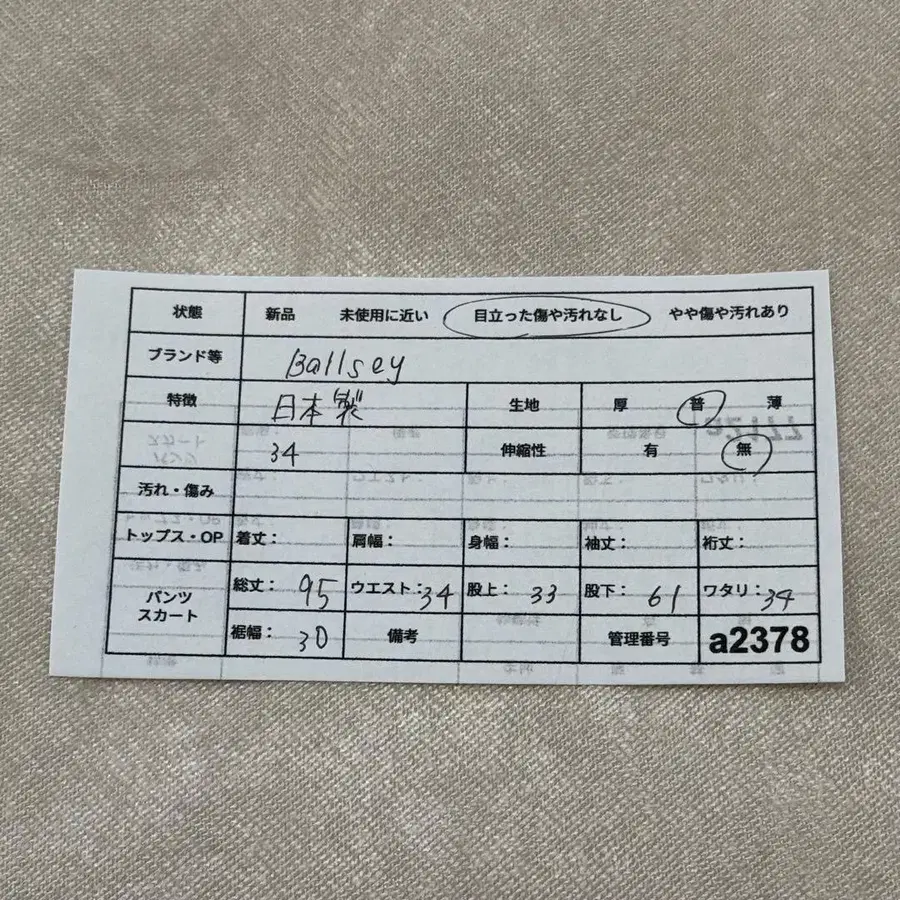 状態 新品 未使用に近い 目立った傷や汚れなし やや傷や汚れあり
ブランド等 Ballsey
特徴 日本製 生地 厚 普 薄
34 伸縮性 有 無
汚れ・傷み
トップス・OP 着丈： 肩幅： 身幅： 袖丈： 裄丈：
パンツ スカート 総丈：95 ウエスト：34 股上：33 股下：61 ワタリ：34
裾幅：30 備考 管理番号 a2378